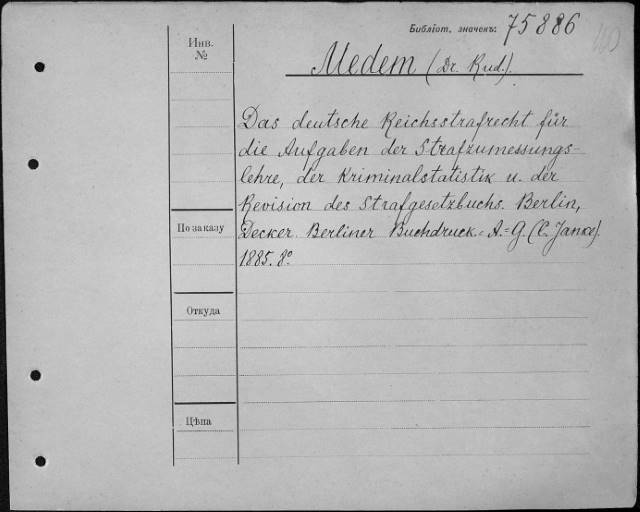 Библіот. значекъ: 75886
Инв. №
Medem (Dr. Rud.).
Das deutsche Reichsstrafrecht für
die Aufgaben der Strafzumessungs-
lehre, der Kriminalstatistik u. der
Revision des Strafgesetzbuchs. Berlin,
По заказу
Decker. Berliner Buchdruck.-A.-G. (C. Janke).
1885. 8°.
Откуда
Цѣна